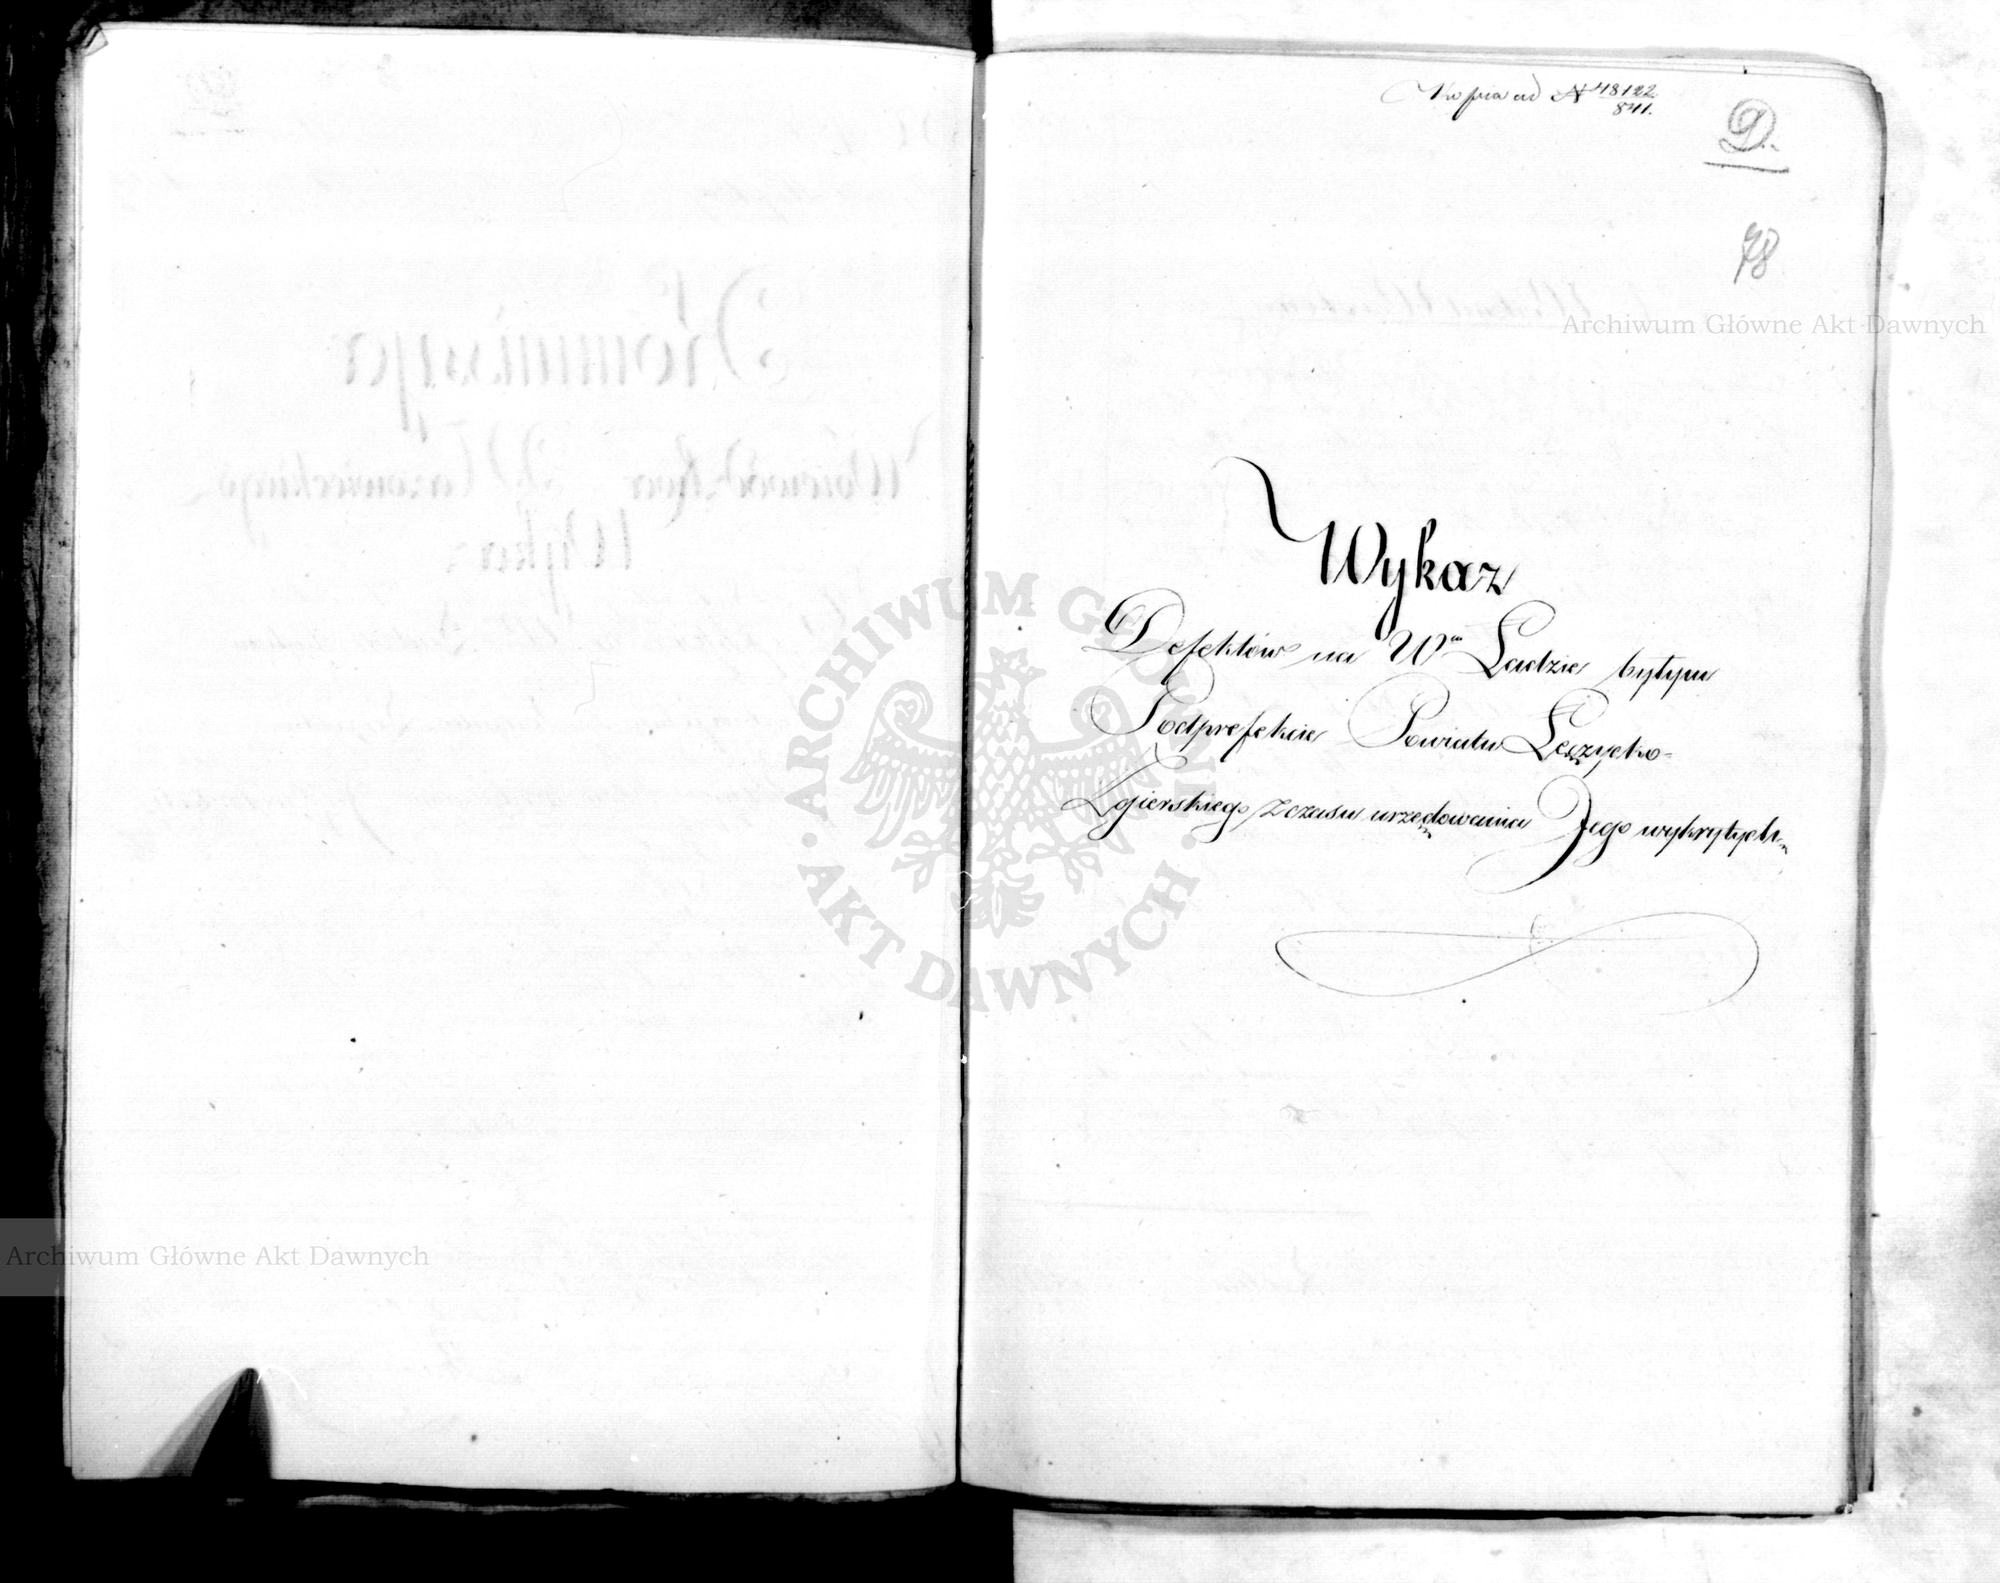 Kopia ad N 48122
841.
D.
78
Archiwum Główne Akt Dawnych
Wykaz
Defektów na Wm Ladzie byłym
Podprefekcie Powiatu Łęczycko-
Zgierskiego z czasu urzędowania Jego wykrytych
ARCHIWUM GŁÓWNE · AKT DAWNYCH ·
Archiwum Główne Akt Dawnych